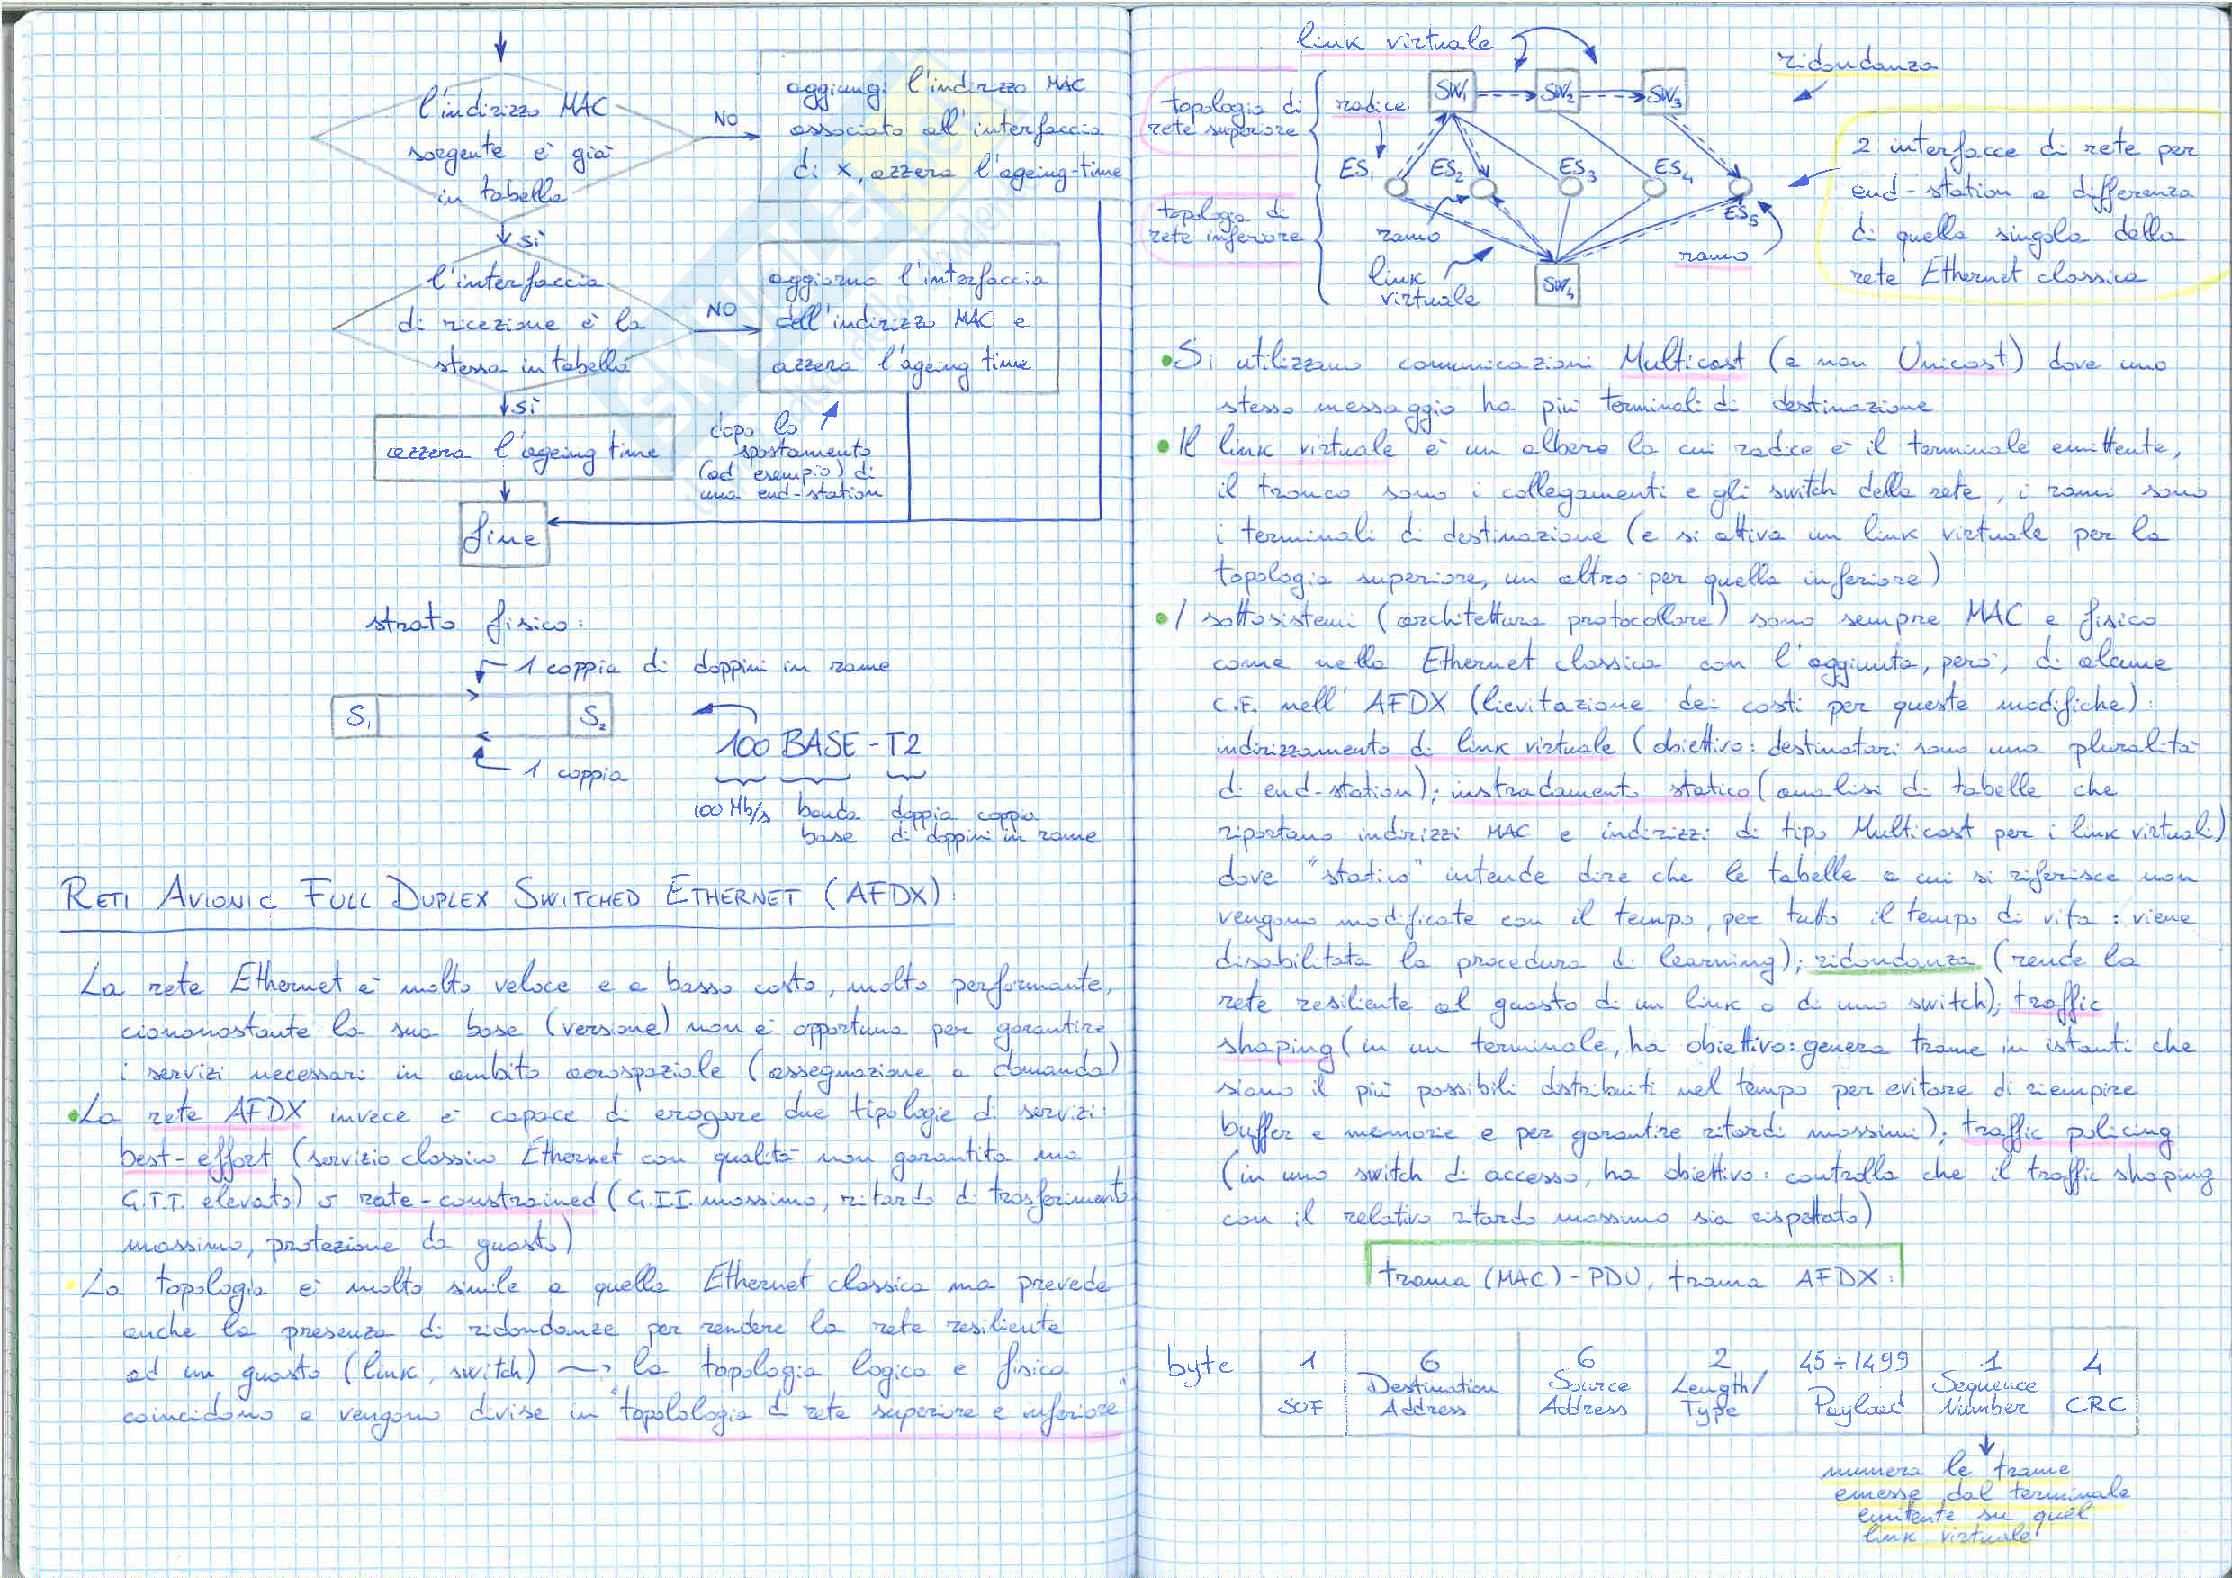 l'indirizzo MAC
sorgente è già
in tabella
NO
aggiungi l'indirizzo MAC
associato all'interfaccia
di x, azzera l'ageing-time
sì
l'interfaccia
di ricezione è la
stessa in tabella
NO
aggiorno l'interfaccia
dell'indirizzo MAC e
azzera l'ageing time
sì
azzera l'ageing time
dopo lo
spostamento
(ad esempio) di
una end-station
fine
strato fisico:
1 coppia di doppini in rame
S1
S2
1 coppia
100 BASE - T2
100 Mb/s
banda
base
doppia coppia
di doppini in rame
RETI AVIONIC FULL DUPLEX SWITCHED ETHERNET (AFDX):
La rete Ethernet è molto veloce e a basso costo, molto performante,
ciononostante la sua base (versione) non è opportuna per garantire
i servizi necessari in ambito aerospaziale (assegnazione a domanda)
• La rete AFDX invece è capace di erogare due tipologie di servizi:
best-effort (servizio classico Ethernet con qualità non garantita ma
G.I.I. elevato) o rate-constrained (G.I.I. massimo, ritardo di trasferimento
massimo, protezione da guasto)
• La topologia è molto simile a quella Ethernet classica ma prevede
anche la presenza di ridondanze per rendere la rete resiliente
ad un guasto (link, switch) → la topologia logica e fisica
coincidono e vengono divise in "topolologia di rete superiore e inferiore"
link virtuale
ridondanza
topologia di
rete superiore
radice
SW1
SW2
SW3
ES1
ES2
ES3
ES4
ES5
topologia di
rete inferiore
ramo
ramo
link
virtuale
SW4
2 interfacce di rete per
end-station a differenza
di quella singola della
rete Ethernet classica
• Si utilizzano comunicazioni Multicast (e non Unicast) dove uno
stesso messaggio ha più terminali di destinazione
• Il link virtuale è un albero la cui radice è il terminale emittente,
il tronco sono i collegamenti e gli switch della rete, i rami sono
i terminali di destinazione (e si attiva un link virtuale per la
topologia superiore, un altro per quella inferiore)
• I sottosistemi (architettura protocollare) sono sempre MAC e fisico
come nella Ethernet classica con l'aggiunta, però, di alcune
C.F. nell'AFDX (lievitazione dei costi per queste modifiche):
indirizzamento di link virtuale (obiettivo: destinatari sono una pluralità
di end-station); instradamento statico (analisi di tabelle che
riportano indirizzi MAC e indirizzi di tipo Multicast per i link virtuali)
dove "statico" intende dire che le tabelle a cui si riferisce non
vengono modificate con il tempo, per tutto il tempo di vita: viene
disabilitata la procedura di learning); ridondanza (rende la
rete resiliente al guasto di un link o di uno switch); traffic
shaping (in un terminale, ha obiettivo: genera trame in istanti che
siano il più possibili distribuiti nel tempo per evitare di riempire
buffer e memorie e per garantire ritardi massimi); traffic policing
(in uno switch di accesso, ha obiettivo: controlla che il traffic shaping
con il relativo ritardo massimo sia rispettato)
trama (MAC)-PDU, trama AFDX:
byte 1 6 6 2 45÷1499 1 4
SOF
Destination
Address
Source
Address
Length/
Type
Payload
Sequence
Number
CRC
numera le trame
emesse dal terminale
emittente su quel
link virtuale